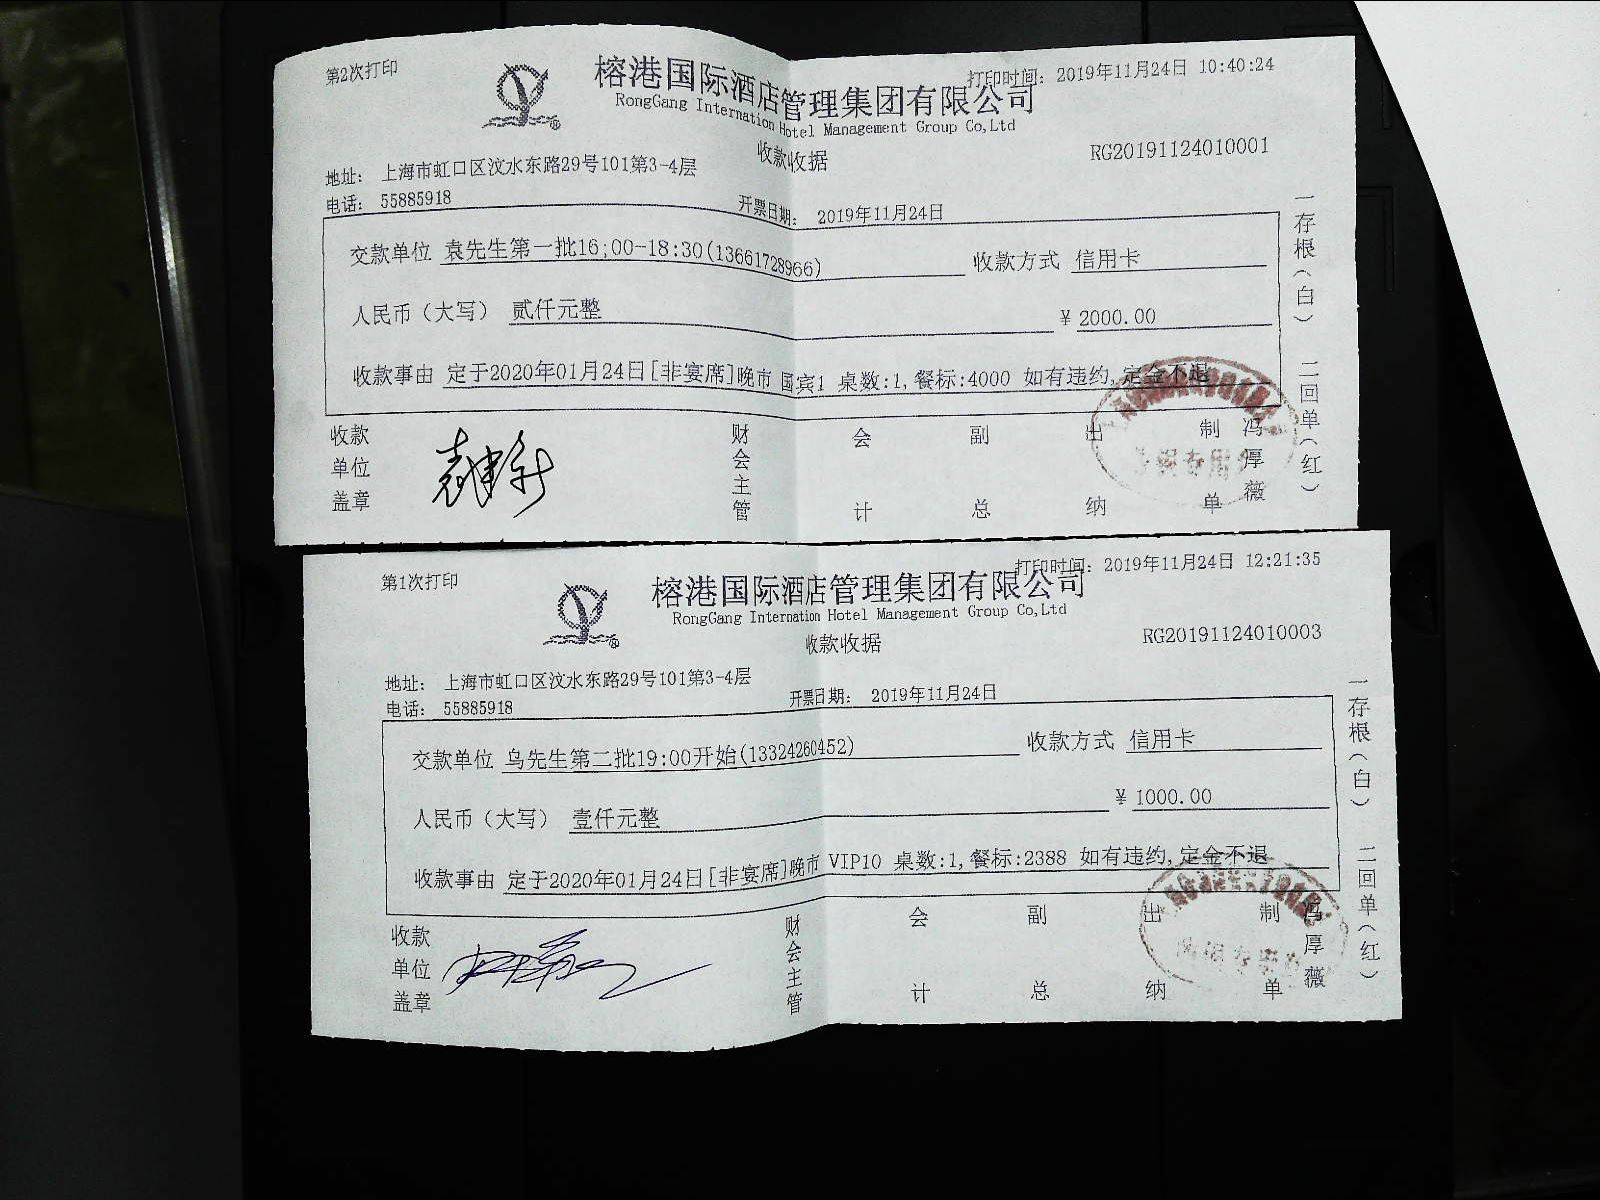 第2次打印
打印时间: 2019年11月24日 10:40:24
榕港国际酒店管理集团有限公司
RongGang Internation Hotel Management Group Co,Ltd
收款收据
RG20191124010001
地址: 上海市虹口区汶水东路29号101第3-4层
电话: 55885918
开票日期: 2019年11月24日
交款单位 袁先生第一批16;00-18:30(13661728966) 收款方式 信用卡
人民币（大写） 贰仟元整 ¥ 2000.00
收款事由 定于2020年01月24日[非宴席]晚市 国宾1 桌数:1,餐标:4000 如有违约,定金不退
收款单位盖章 财会主管 会计 副总 出纳 制单 冯厚薇
一存根（白） 二回单（红）
第1次打印
打印时间: 2019年11月24日 12:21:35
榕港国际酒店管理集团有限公司
RongGang Internation Hotel Management Group Co,Ltd
收款收据
RG20191124010003
地址: 上海市虹口区汶水东路29号101第3-4层
电话: 55885918
开票日期: 2019年11月24日
交款单位 乌先生第二批19:00开始(13324260452) 收款方式 信用卡
人民币（大写） 壹仟元整 ¥ 1000.00
收款事由 定于2020年01月24日[非宴席]晚市 VIP10 桌数:1,餐标:2388 如有违约,定金不退
收款单位盖章 财会主管 会计 副总 出纳 制单 冯厚薇
一存根（白） 二回单（红）